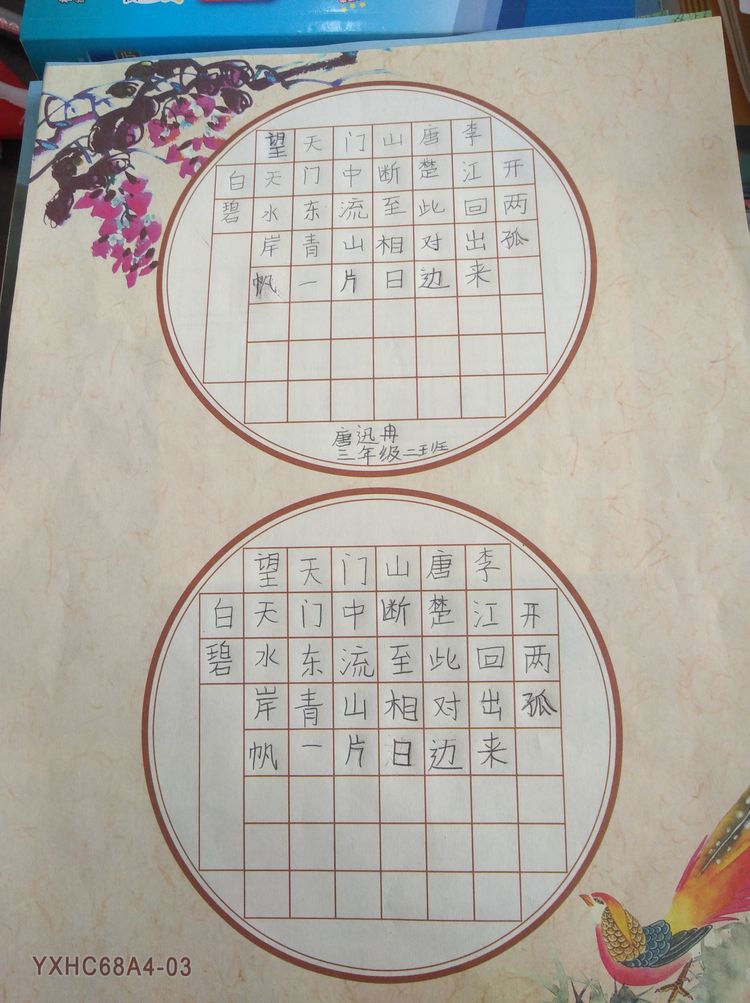 望天门山唐李
白天门中断楚江开
碧水东流至此回两
岸青山相对出孤
帆一片日边来
唐迅冉
三年级二班
望天门山唐李
白天门中断楚江开
碧水东流至此回两
岸青山相对出孤
帆一片日边来
YXHC68A4-03